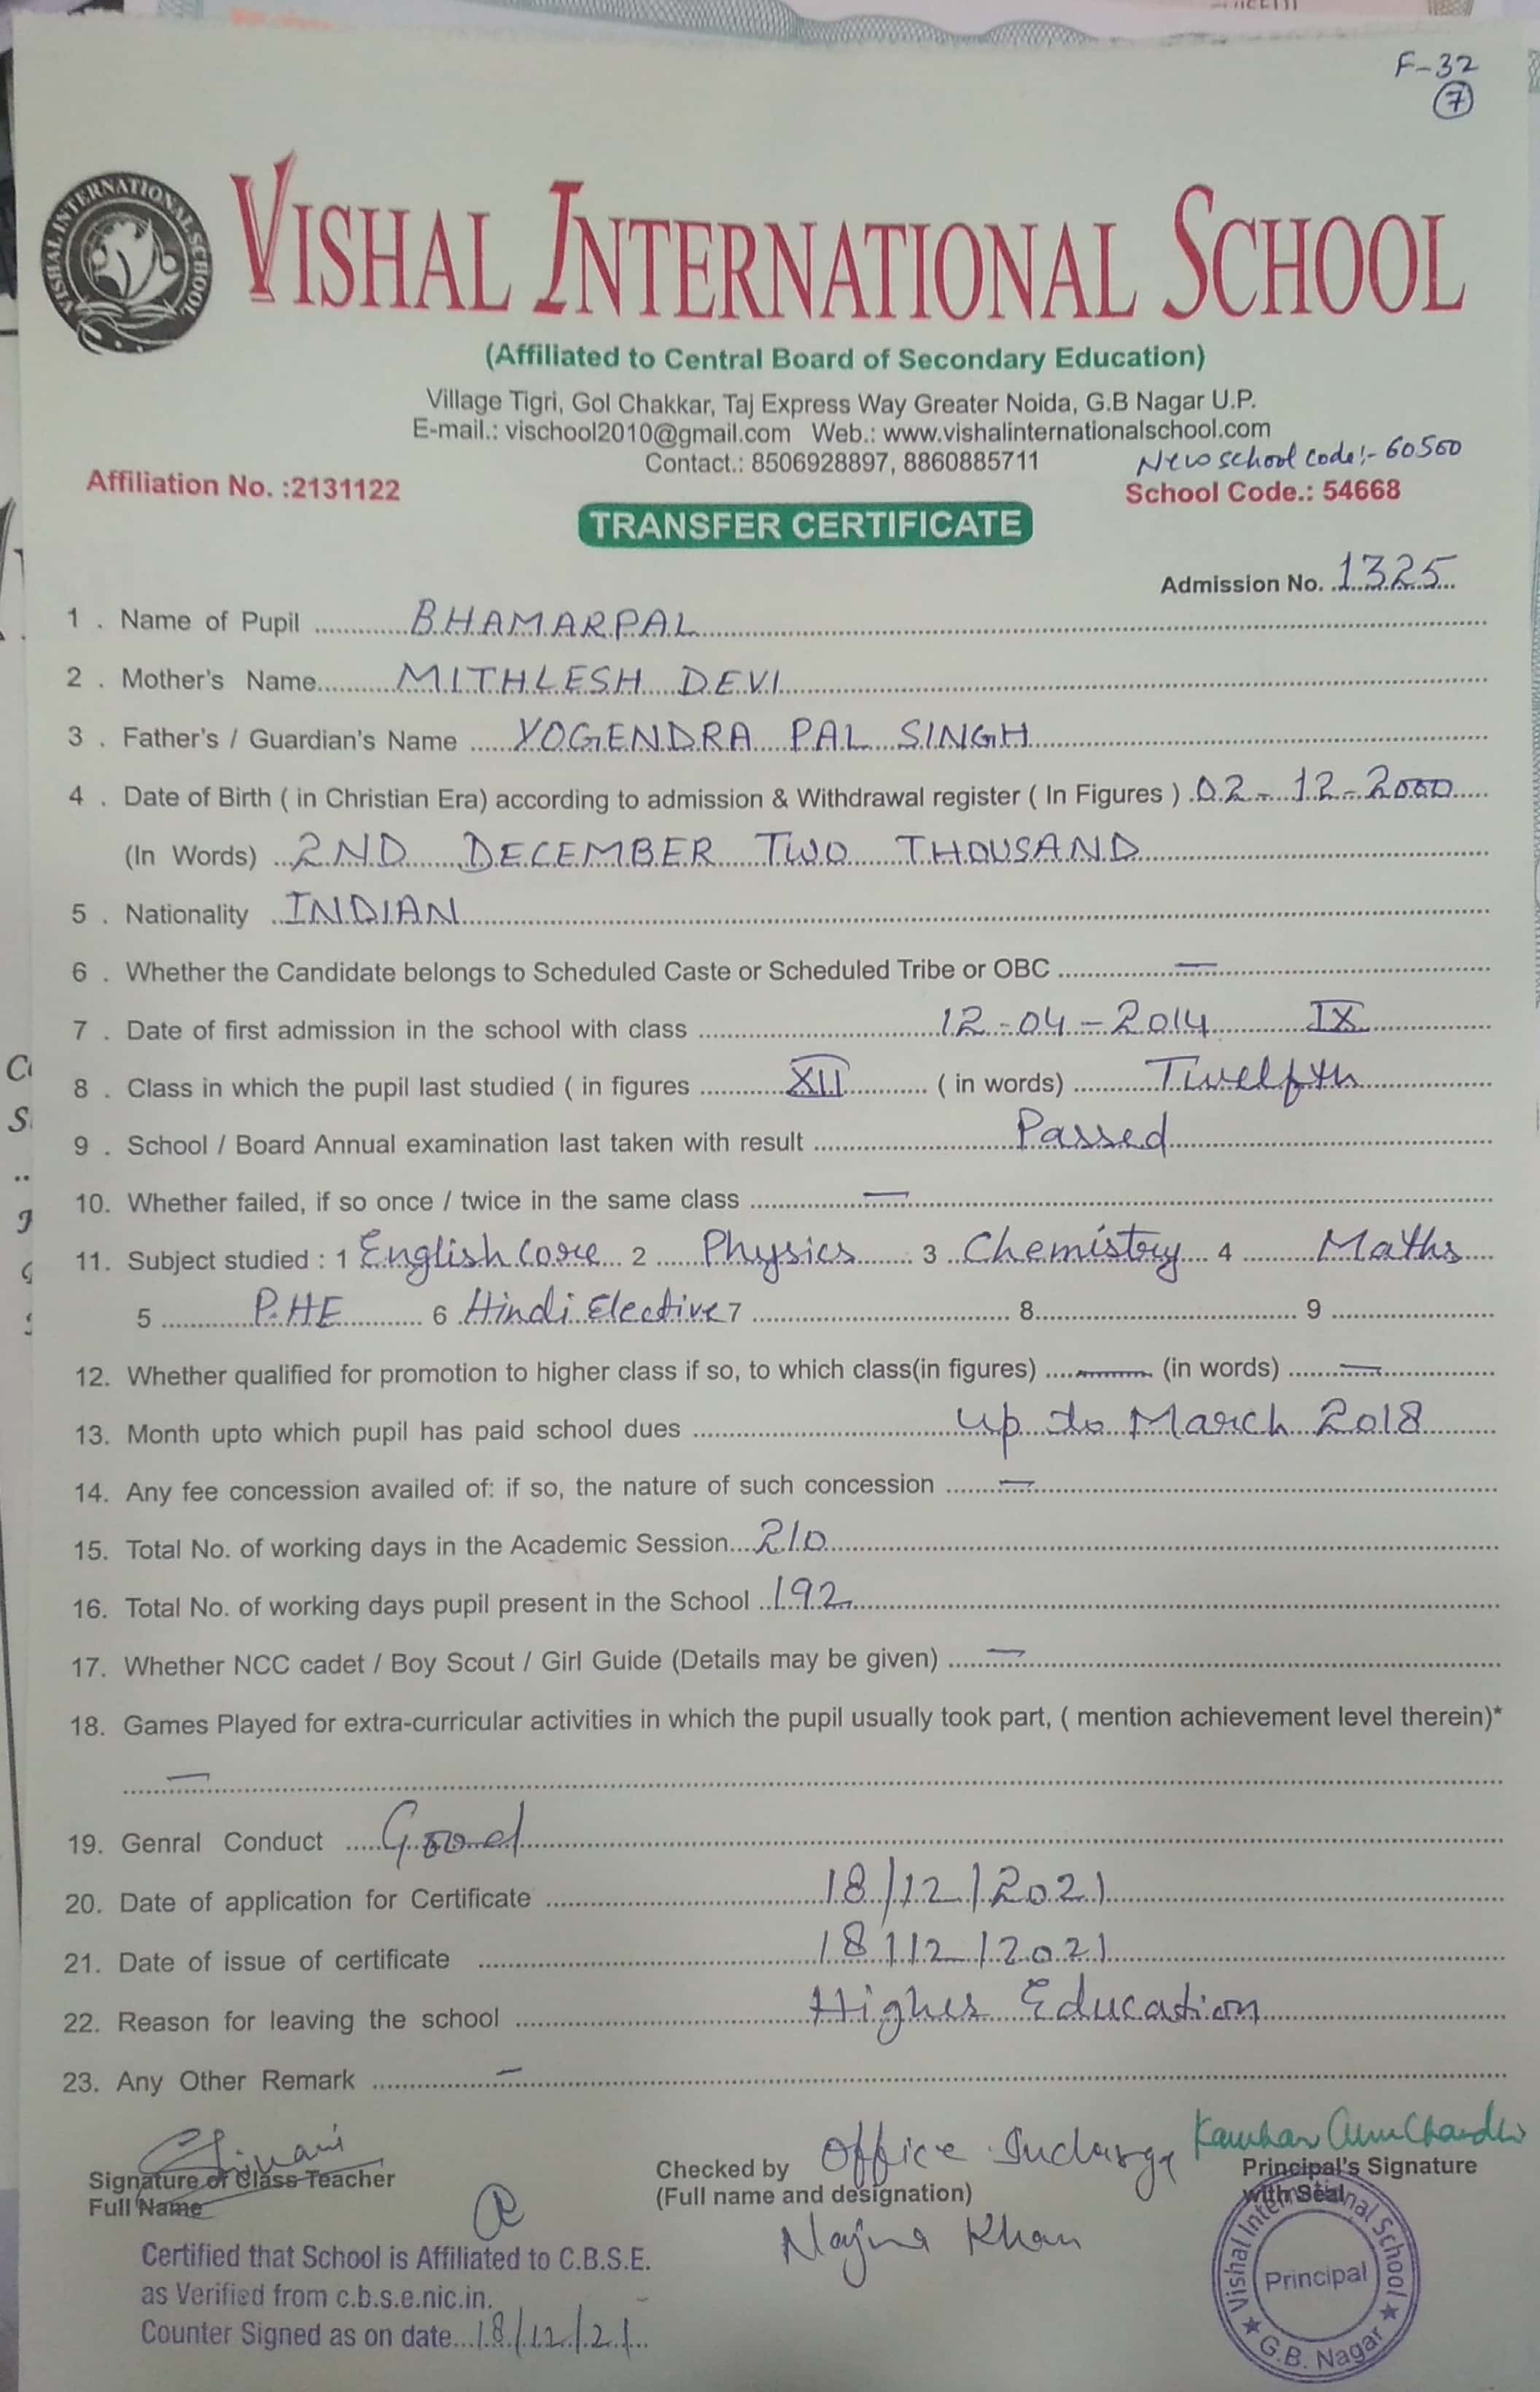 F-32
7
VISHAL INTERNATIONAL SCHOOL
VISHAL INTERNATIONAL SCHOOL
(Affiliated to Central Board of Secondary Education)
Village Tigri, Gol Chakkar, Taj Express Way Greater Noida, G.B Nagar U.P.
E-mail.: vischool2010@gmail.com Web.: www.vishalinternationalschool.com
Contact.: 8506928897, 8860885711
New school code:- 60500
Affiliation No. :2131122
School Code.: 54668
TRANSFER CERTIFICATE
Admission No. 1325
1 . Name of Pupil BHAMARPAL
2 . Mother's Name MITHLESH DEVI
3 . Father's / Guardian's Name YOGENDRA PAL SINGH
4 . Date of Birth ( in Christian Era) according to admission & Withdrawal register ( In Figures ) 02-12-2000
(In Words) 2ND DECEMBER TWO THOUSAND
5 . Nationality INDIAN
6 . Whether the Candidate belongs to Scheduled Caste or Scheduled Tribe or OBC —
7 . Date of first admission in the school with class 12-04-2014 IX
8 . Class in which the pupil last studied ( in figures XII ( in words) Twelfth
9 . School / Board Annual examination last taken with result Passed
10. Whether failed, if so once / twice in the same class —
11. Subject studied : 1 English Core 2 Physics 3 Chemistry 4 Maths
5 P.HE 6 Hindi Elective 7 8 9
12. Whether qualified for promotion to higher class if so, to which class(in figures) — (in words) —
13. Month upto which pupil has paid school dues up to March 2018
14. Any fee concession availed of: if so, the nature of such concession —
15. Total No. of working days in the Academic Session 210
16. Total No. of working days pupil present in the School 192
17. Whether NCC cadet / Boy Scout / Girl Guide (Details may be given) —
18. Games Played for extra-curricular activities in which the pupil usually took part, ( mention achievement level therein)*
—
19. Genral Conduct Good
20. Date of application for Certificate 18/12/2021
21. Date of issue of certificate 18/12/2021
22. Reason for leaving the school Higher Education
23. Any Other Remark —
Signature of Class Teacher
Full Name
Checked by Office Incharge
(Full name and designation)
Najma Khan
Principal's Signature
with Seal
Certified that School is Affiliated to C.B.S.E.
as Verified from c.b.s.e.nic.in.
Counter Signed as on date 18/12/21
Vishal International School
Principal
★ G.B. Nagar ★